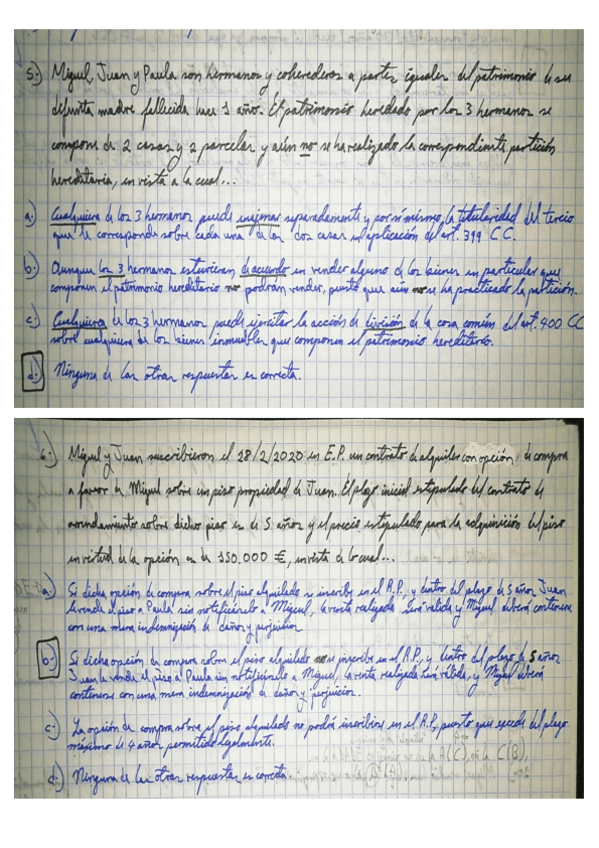 5.) Miguel, Juan y Paula son hermanos y coherederos a partes iguales del patrimonio de su
difunta madre fallecida hace 1 año. El patrimonio heredado por los 3 hermanos se
compone de 2 casas y 2 parcelas y aún no se ha realizado la correspondiente partición
hereditaria, en vista a la cual...
a.) Cualquiera de los 3 hermanos puede enajenar separadamente y por sí mismo, la titularidad del tercio
que le corresponde sobre cada una de las dos casas en aplicación del art. 399 CC.
b.) Aunque los 3 hermanos estuvieran de acuerdo en vender alguno de los bienes en particular que
componen el patrimonio hereditario no podrán vender, puesto que aún no se ha practicado la partición.
c.) Cualquiera de los 3 hermanos puede ejercitar la acción de división de la cosa común del art. 400 CC
sobre cualquiera de los bienes inmuebles que componen el patrimonio hereditario.
d.) Ninguna de las otras respuestas es correcta.
6.) Miguel y Juan suscribieron el 28/2/2020 en E.P. un contrato de alquiler con opción de compra
a favor de Miguel sobre un piso propiedad de Juan. El plazo inicial estipulado del contrato de
arrendamiento sobre dicho piso es de 5 años y el precio estipulado para la adquisición del piso
en virtud de la opción es de 150.000 €, en vista de lo cual...
a.) Si dicha opción de compra sobre el piso alquilado se inscribe en el R.P., y dentro del plazo de 5 años Juan
le vende el piso a Paula sin notificárselo a Miguel, la venta realizada será válida y Miguel deberá contentarse
con una mera indemnización de daños y perjuicios.
b.) Si dicha opción de compra sobre el piso alquilado no se inscribe en el R.P., y dentro del plazo de 5 años
Juan le vende el piso a Paula sin notificárselo a Miguel, la venta realizada será válida, y Miguel deberá
contentarse con una mera indemnización de daños y perjuicios.
c.) La opción de compra sobre el piso alquilado no podrá inscribirse en el R.P., puesto que excede del plazo
máximo de 4 años permitido legalmente.
d.) Ninguna de las otras respuestas es correcta.